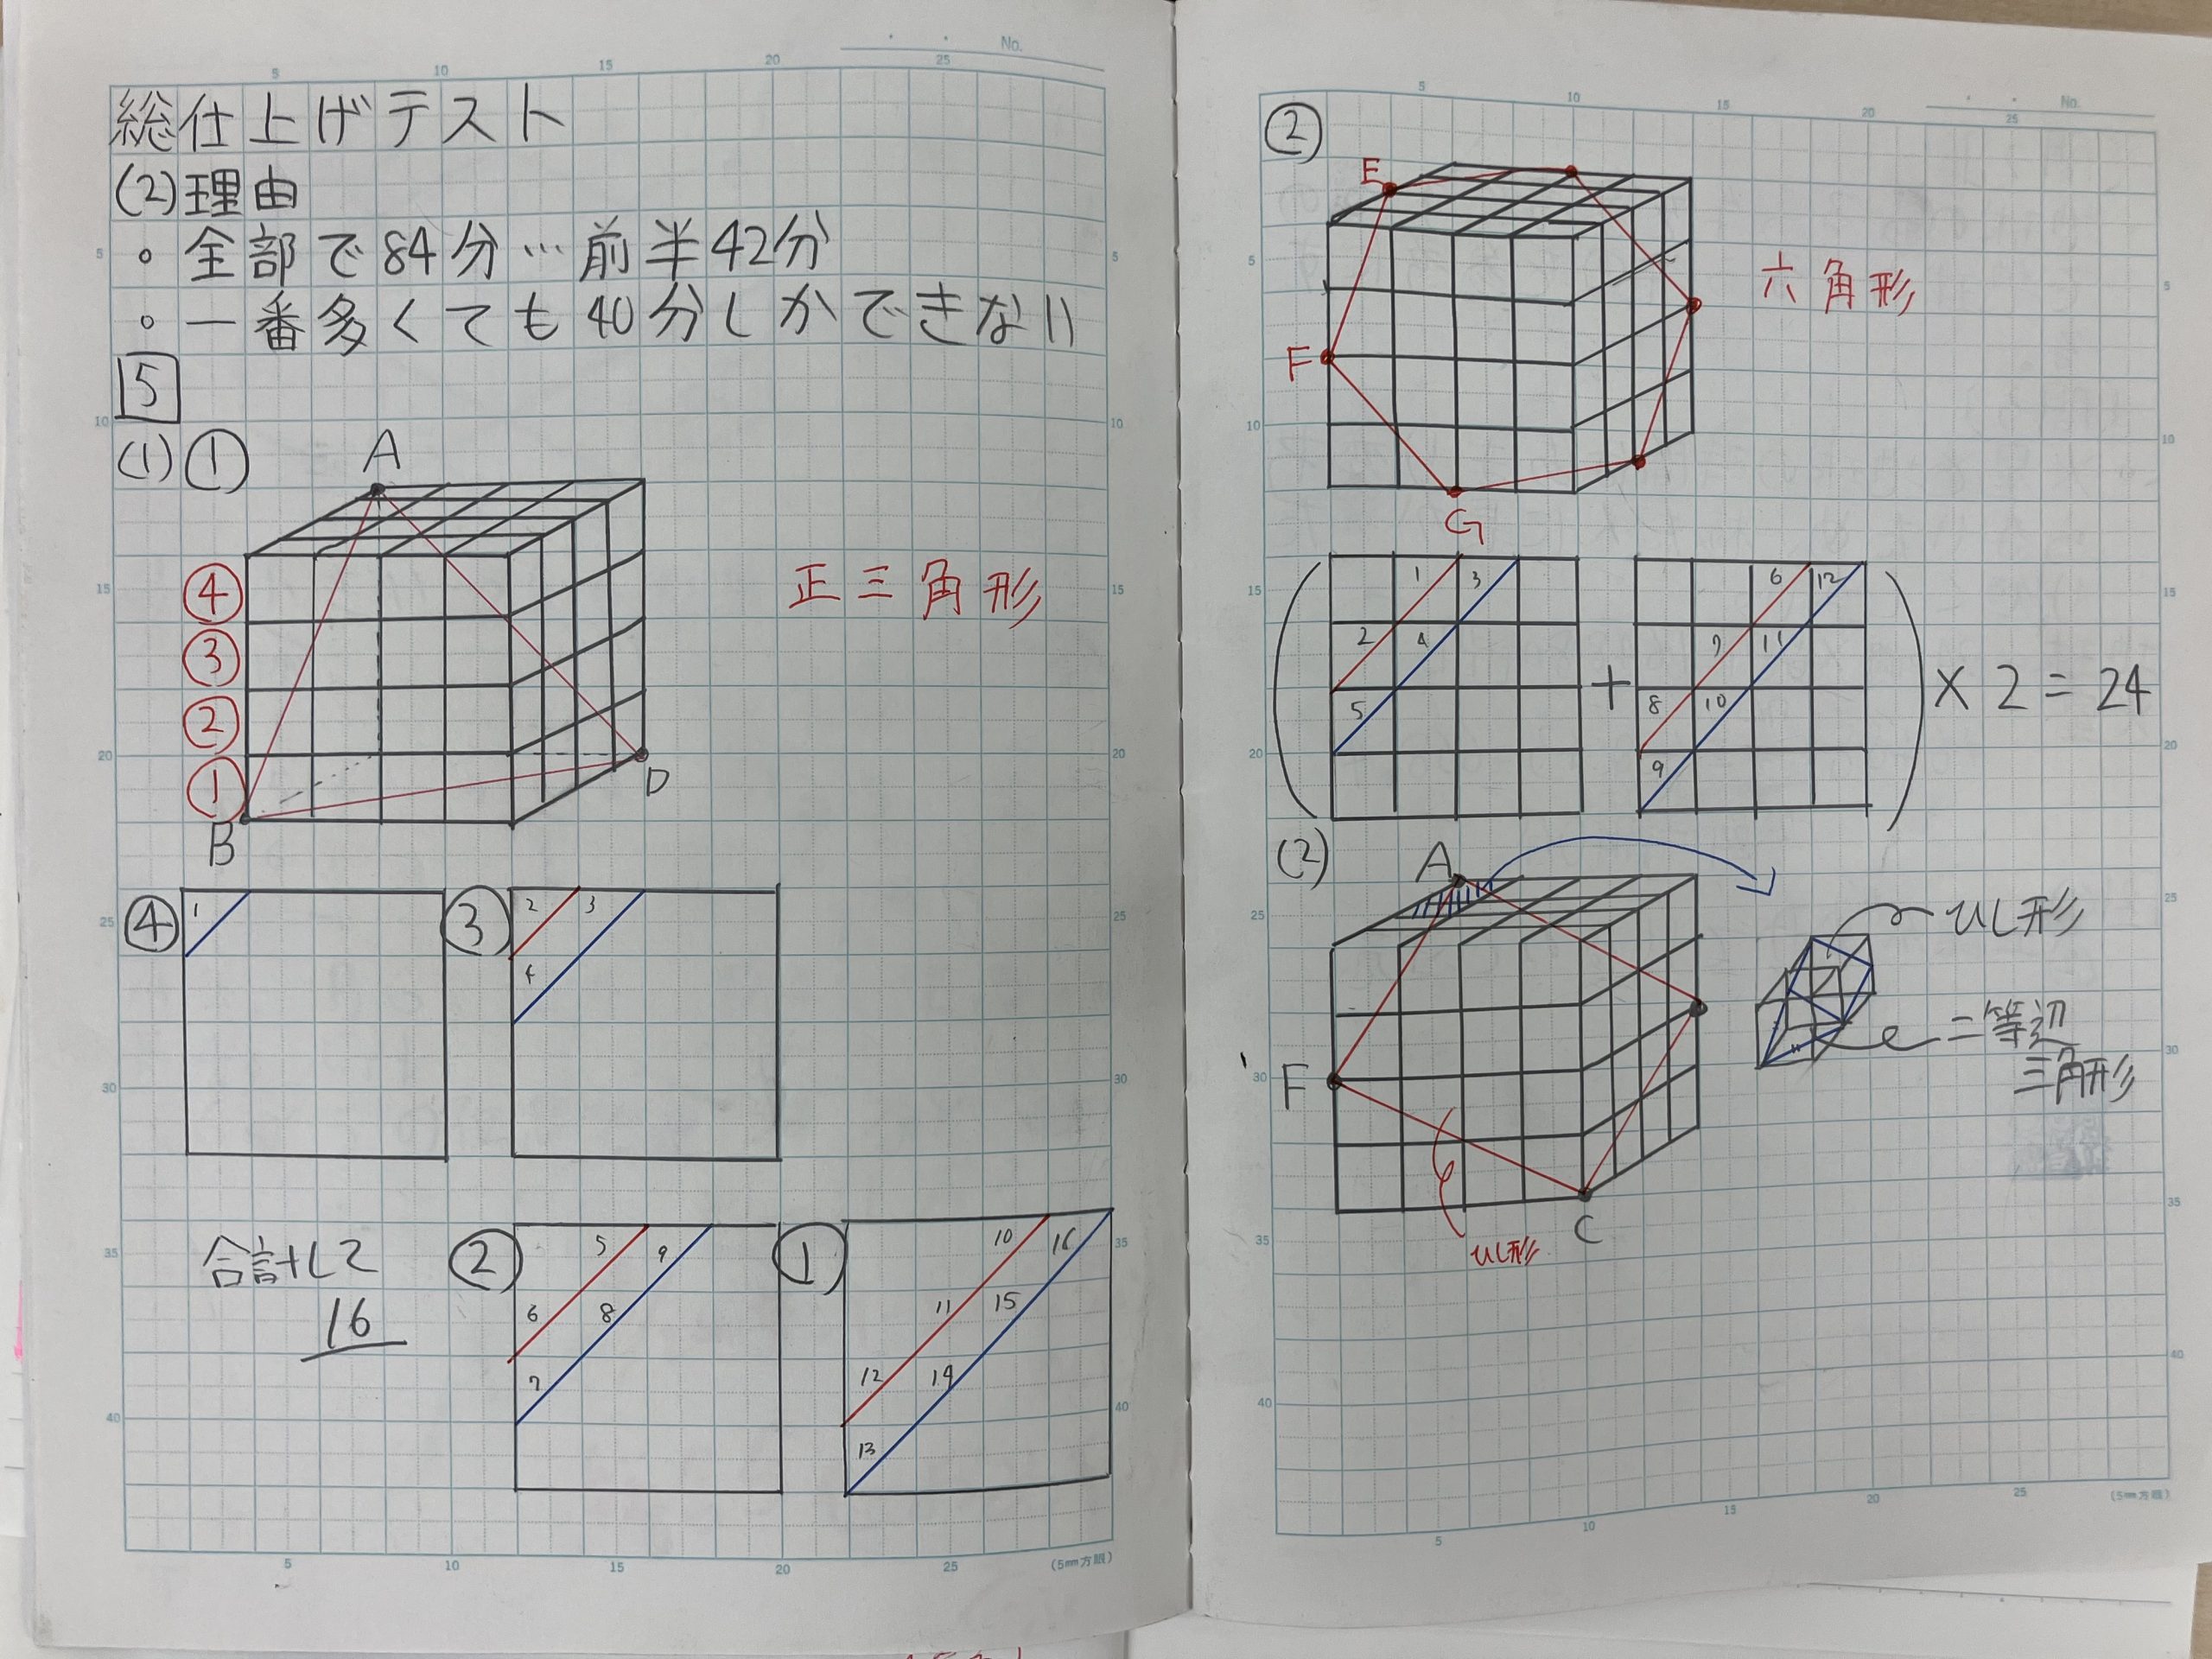 No.
総仕上げテスト
(2)理由
・全部で84分…前半42分
・一番多くても40分しかできない
5
(1)①
A
正三角形
④
③
②
①
B
D
④
1
③
2 3
4
合計して
16
②
5 9
6 8
7
①
10 16
11 15
12 14
13
(5mm方眼)
No.
②
E
六角形
F
G
1 3
2 4
5
+
6 12
7 11
8 10
9
×2=24
(2)
A
ひし形
二等辺
三角形
F
C
ひし形
(5mm方眼)